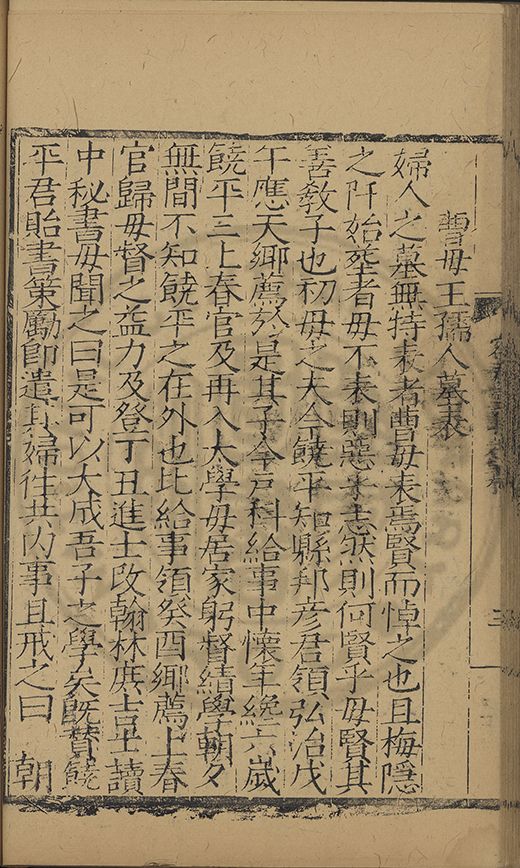 曹母王孺人墓表
婦人之墓無特表者曹母表焉賢而悼之也且梅隱
之阡始塟者母不表則惡乎志然則何賢乎母賢其
善教子也初母之夫今饒平知縣邦彦君領弘治戊
午應天鄉薦於是其子今戸科給事中懷年纔六歲
饒平三上春官及再入大學母居家躬督績學朝夕
無間不知饒平之在外也比給事領癸酉鄉薦上春
官歸母督之益力及登丁丑進士改翰林庶吉士讀
中秘書母聞之曰是可以大成吾子之學矣旣贊饒
平君貽書策勵卽遣其婦往共内事且戒之曰 朝
三